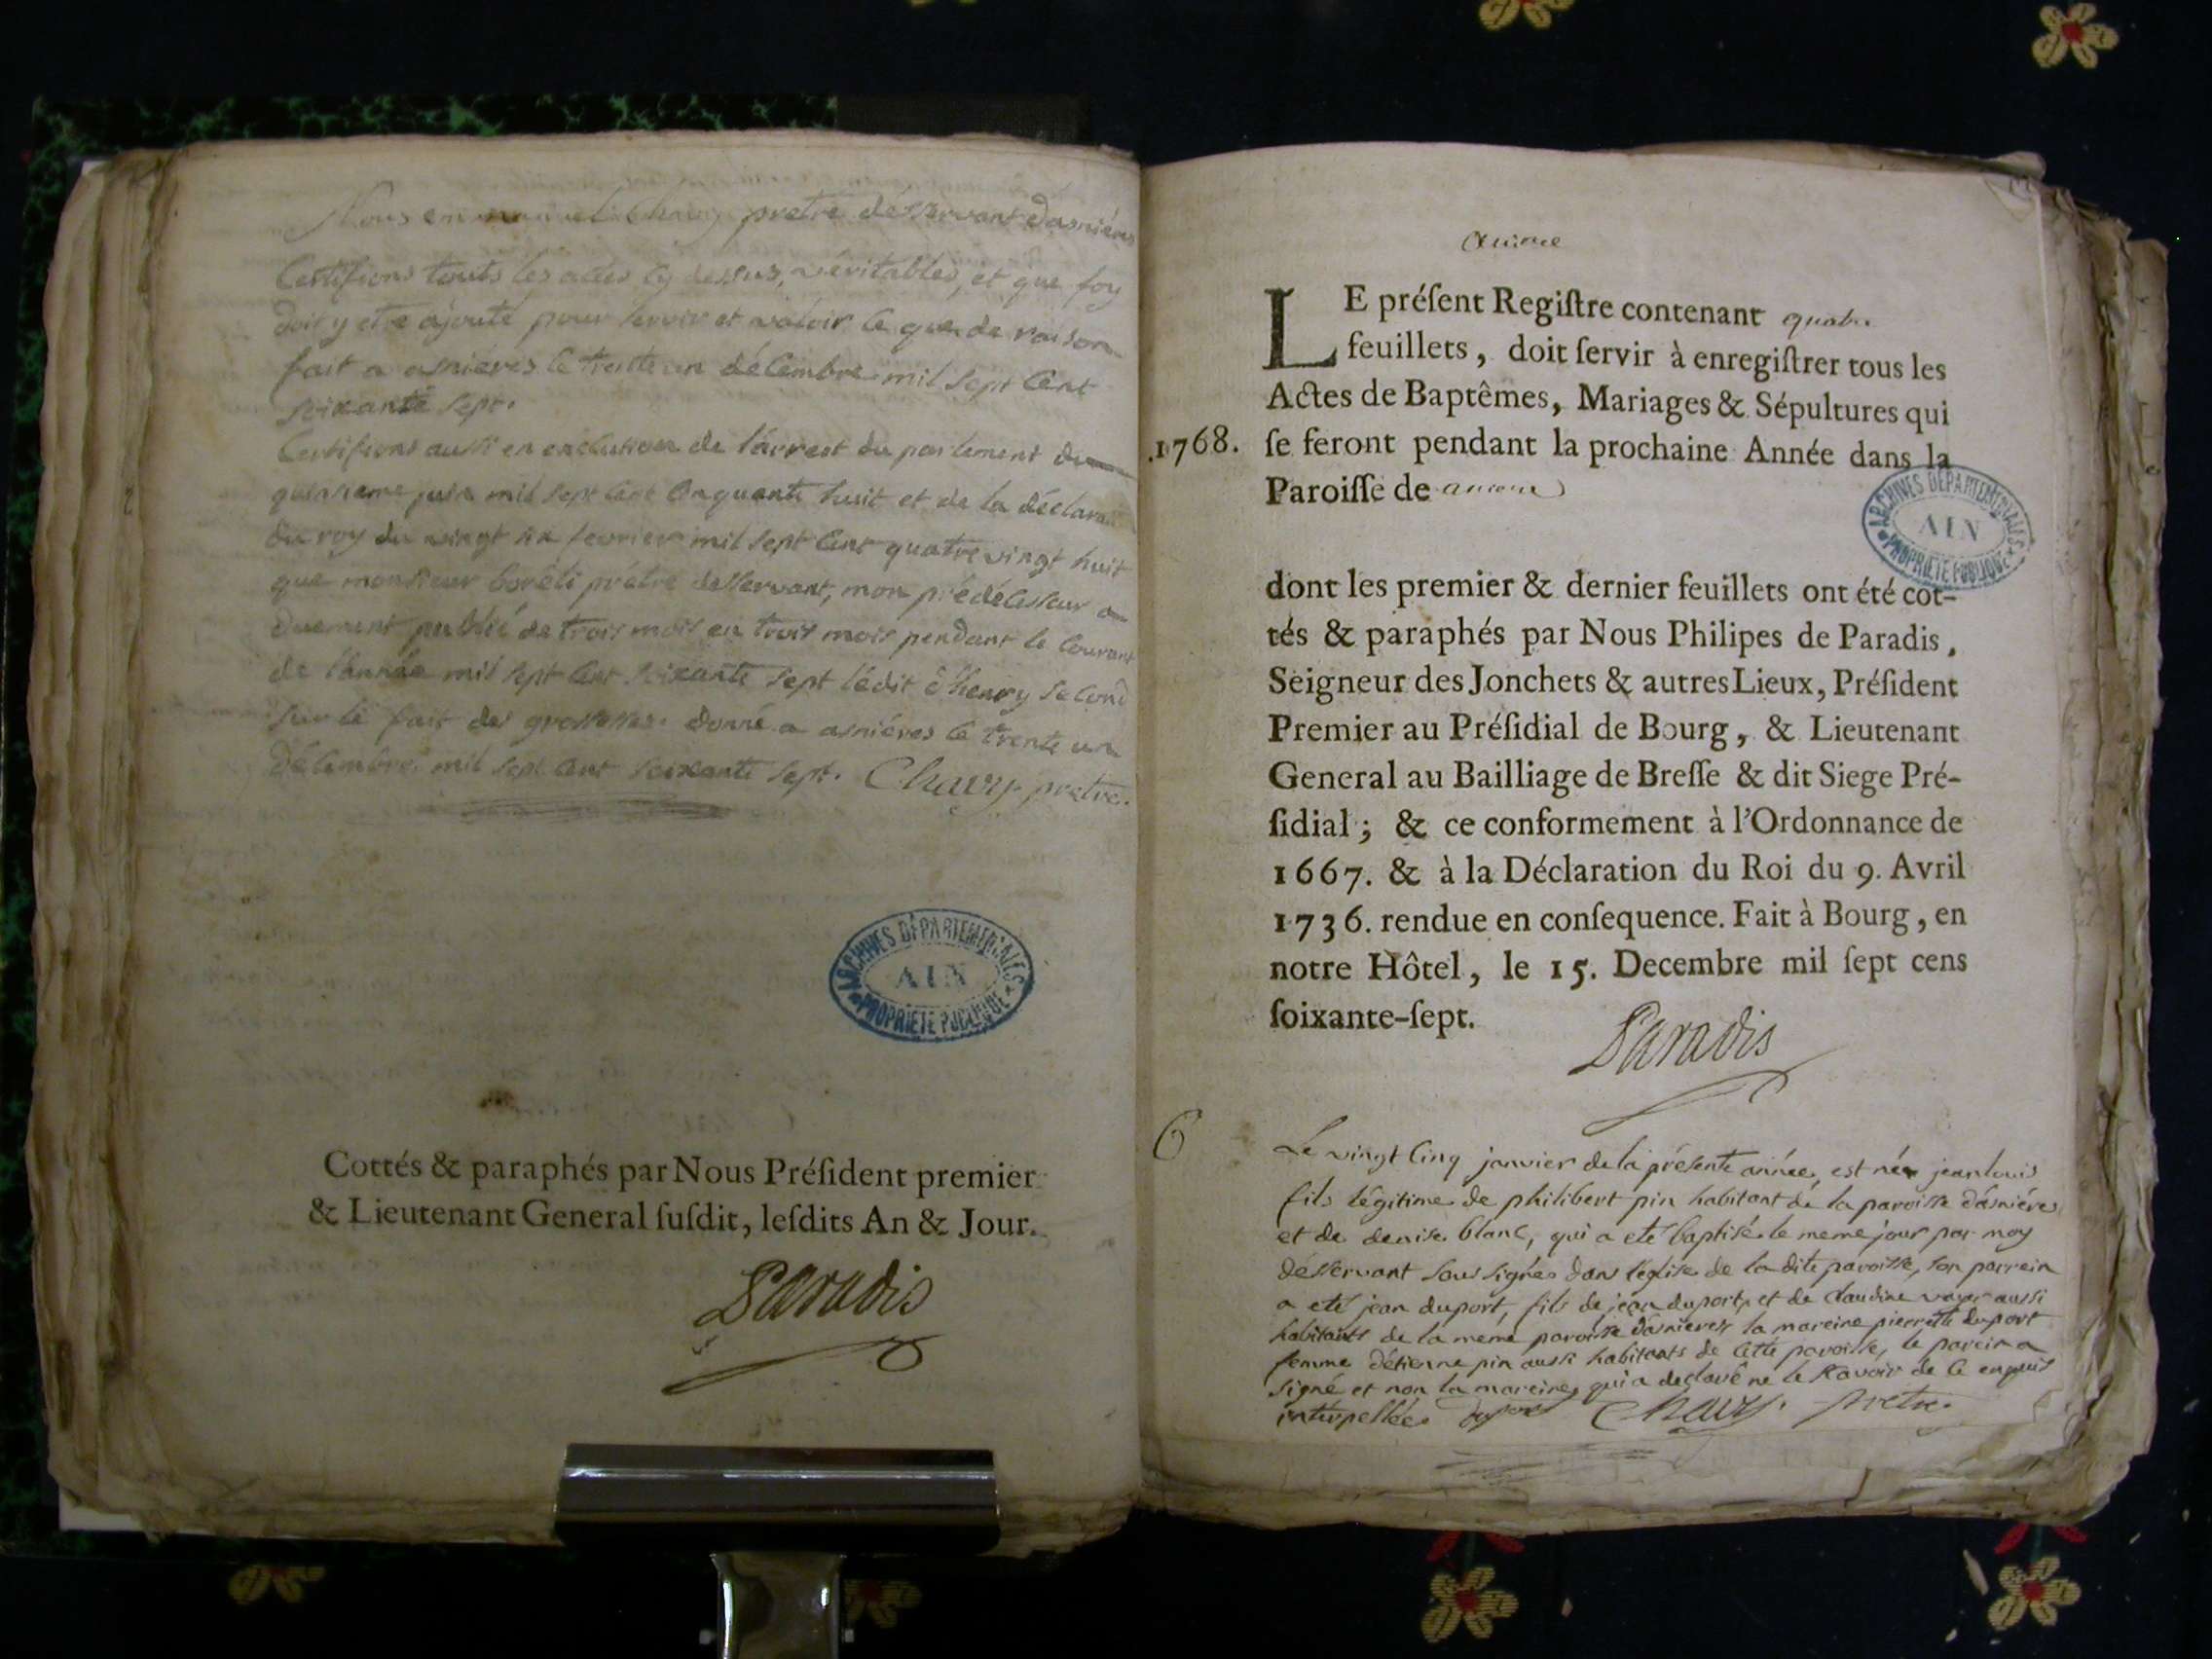 Nous emmanuel Chavy pretre désservant dasniéres
Certifions touts les actes cy dessus, véritables, et que foy
doit y etre ajouté pour servir et valoir ce que de raison
fait a asniéres le trente un décembre mil sept cent
soixante sept.
Certifions aussi en exécution de l'arrest du parlement du
quinzieme juin mil sept cent cinquante huit et de la déclaration
du roy du vingt six fevrier mil sept cent quatre vingt huit
que monsieur boréti prétre desservant, mon prédécesseur a
duement publié de trois mois en trois mois pendant le courant
de l'année mil sept cent soixante sept lédit d'henry second
sur le fait des grossesses. donné a asniéres le trente un
décembre mil sept cent soixante sept. Chavy pretre.
ARCHIVES DÉPARTEMENTALES
AIN
PROPRIÉTÉ PUBLIQUE
Cottés & paraphés par Nous Préſident premier
& Lieutenant General ſuſdit, leſdits An & Jour.
Paradis
LE préſent Regiſtre contenant quatre
feuillets, doit ſervir à enregiſtrer tous les
Actes de Baptêmes, Mariages & Sépultures qui
1768. ſe feront pendant la prochaine Année dans la
Paroiſſe de
ARCHIVES DÉPARTEMENTALES
AIN
PROPRIÉTÉ PUBLIQUE
dont les premier & dernier feuillets ont été cot-
tés & paraphés par Nous Philipes de Paradis,
Seigneur des Jonchets & autres Lieux, Préſident
Premier au Préſidial de Bourg, & Lieutenant
General au Bailliage de Breſſe & dit Siege Pré-
ſidial; & ce conformement à l'Ordonnance de
1667. & à la Déclaration du Roi du 9. Avril
1736. rendue en conſequence. Fait à Bourg, en
notre Hôtel, le 15. Decembre mil ſept cens
ſoixante-ſept.
Paradis
Le vingt cinq janvier de la présente année, est né jean louis
fils légitime de philibert pin habitant de la paroisse dasniéres
et de denise blanc, qui a eté baptisé le meme jour par moy
désservant sous signé dans léglise de la dite paroisse, son parrein
a eté jean duport, fils de jean duport, et de claudine aussi
habitants de la meme paroisse dasnieres la mareine pierrette duport
femme détienne pin aussi habitants de cette paroisse, le parein a
signé et non la mareine, qui a declaré ne le scavoir de ce enquis
interpellée duport Chavy. pretre.